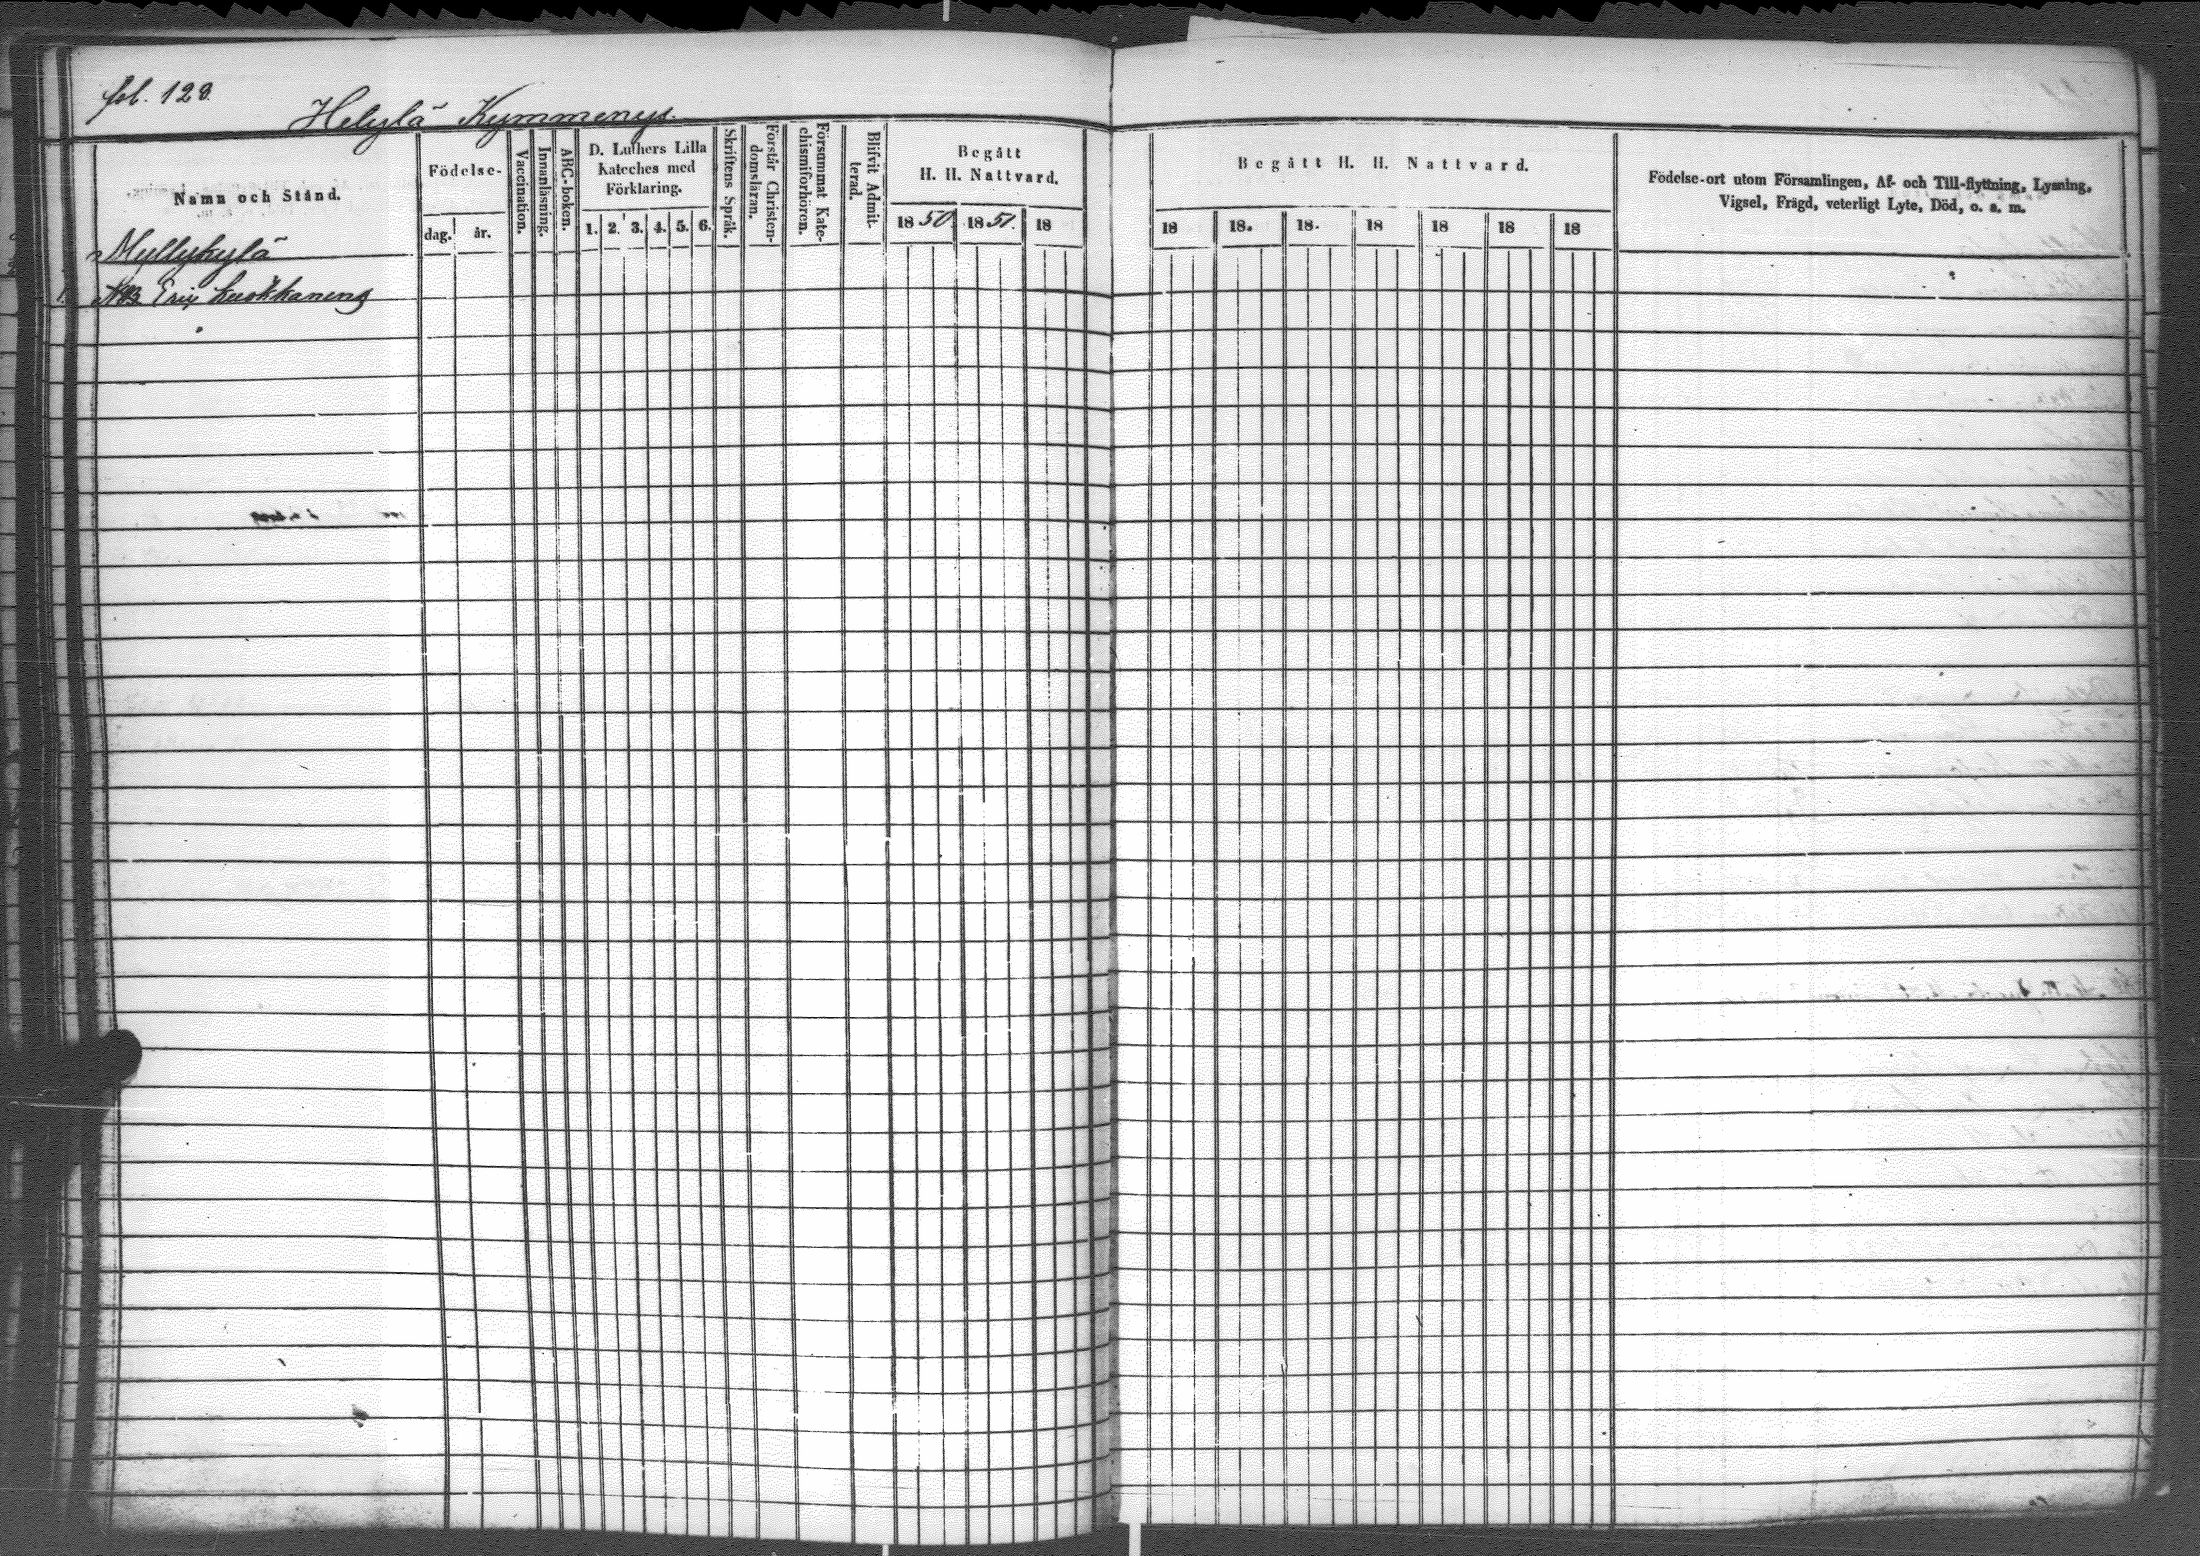 fol. 123.
Helylä Kymmenys.
Namn och Stånd.
Födelse-
dag. år.
Vaccination.
Innanläsning.
ABC-boken.
D. Luthers Lilla
Kateches med
Förklaring.
1. 2. 3. 4. 5. 6.
Skriftens Språk.
Förstår Christen-
domslåran.
Försummat Kate-
chismiförhören.
Blifvit Admit-
terad.
Begått
H. H. Nattvard.
18 50. 18 51. 18
Begått H. H. Nattvard.
18 18. 18. 18 18 18 18
Födelse-ort utom Församlingen, Af- och Till-flyttning, Lysning,
Vigsel, Frägd, veterligt Lyte, Död, o. s. m.
Myllykylä
Erik